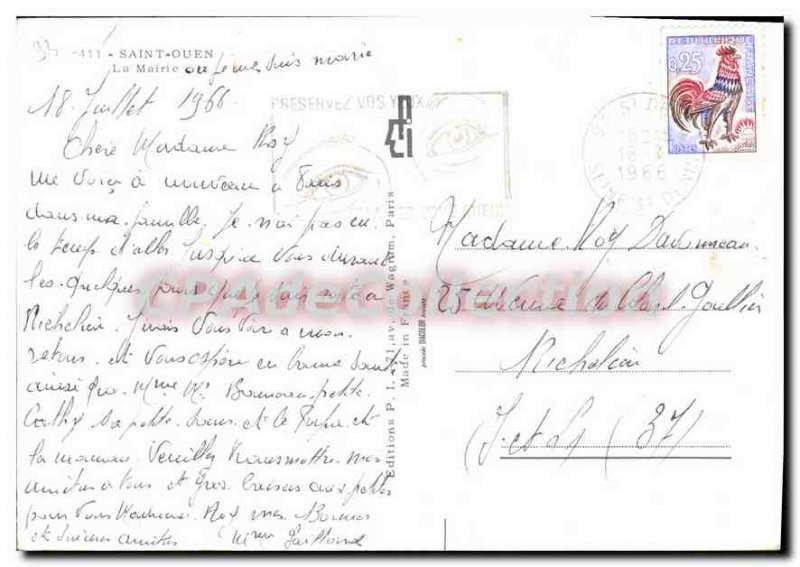 93 -411 - SAINT-OUEN
La Mairie où je me suis mariée
18 Juillet 1966
Chère Madame Roy
me voici à nouveau à Paris
dans ma famille. Je n'ai pas eu
le temps d'aller jusqu'à vous durant
les quelques jours que je suis resté à
Richelieu. J'irais vous voir a mon
retour et vous espère en bonne santé
ainsi que Mme Mr petite
Cathy sa petite soeur et le Papa et
la maman. Veuillez transmettre mes
amitiés a tous et gros baisers aux petites
pour vous Madame Roy mes Bonnes
et sincères amitiés Mme
Editions P. I. - 21, av. de Wagram, Paris
Made in France
procédé DIACOLOR
P.I
PRESERVEZ VOS YEUX
93 ST DENIS
18
1966
SEINE ST DENIS
REPUBLIQUE FRANÇAISE
0,25
Madame Roy
25 Avenue du Gaullier
Richelieu
I. et L. (37)
CPA de Collection